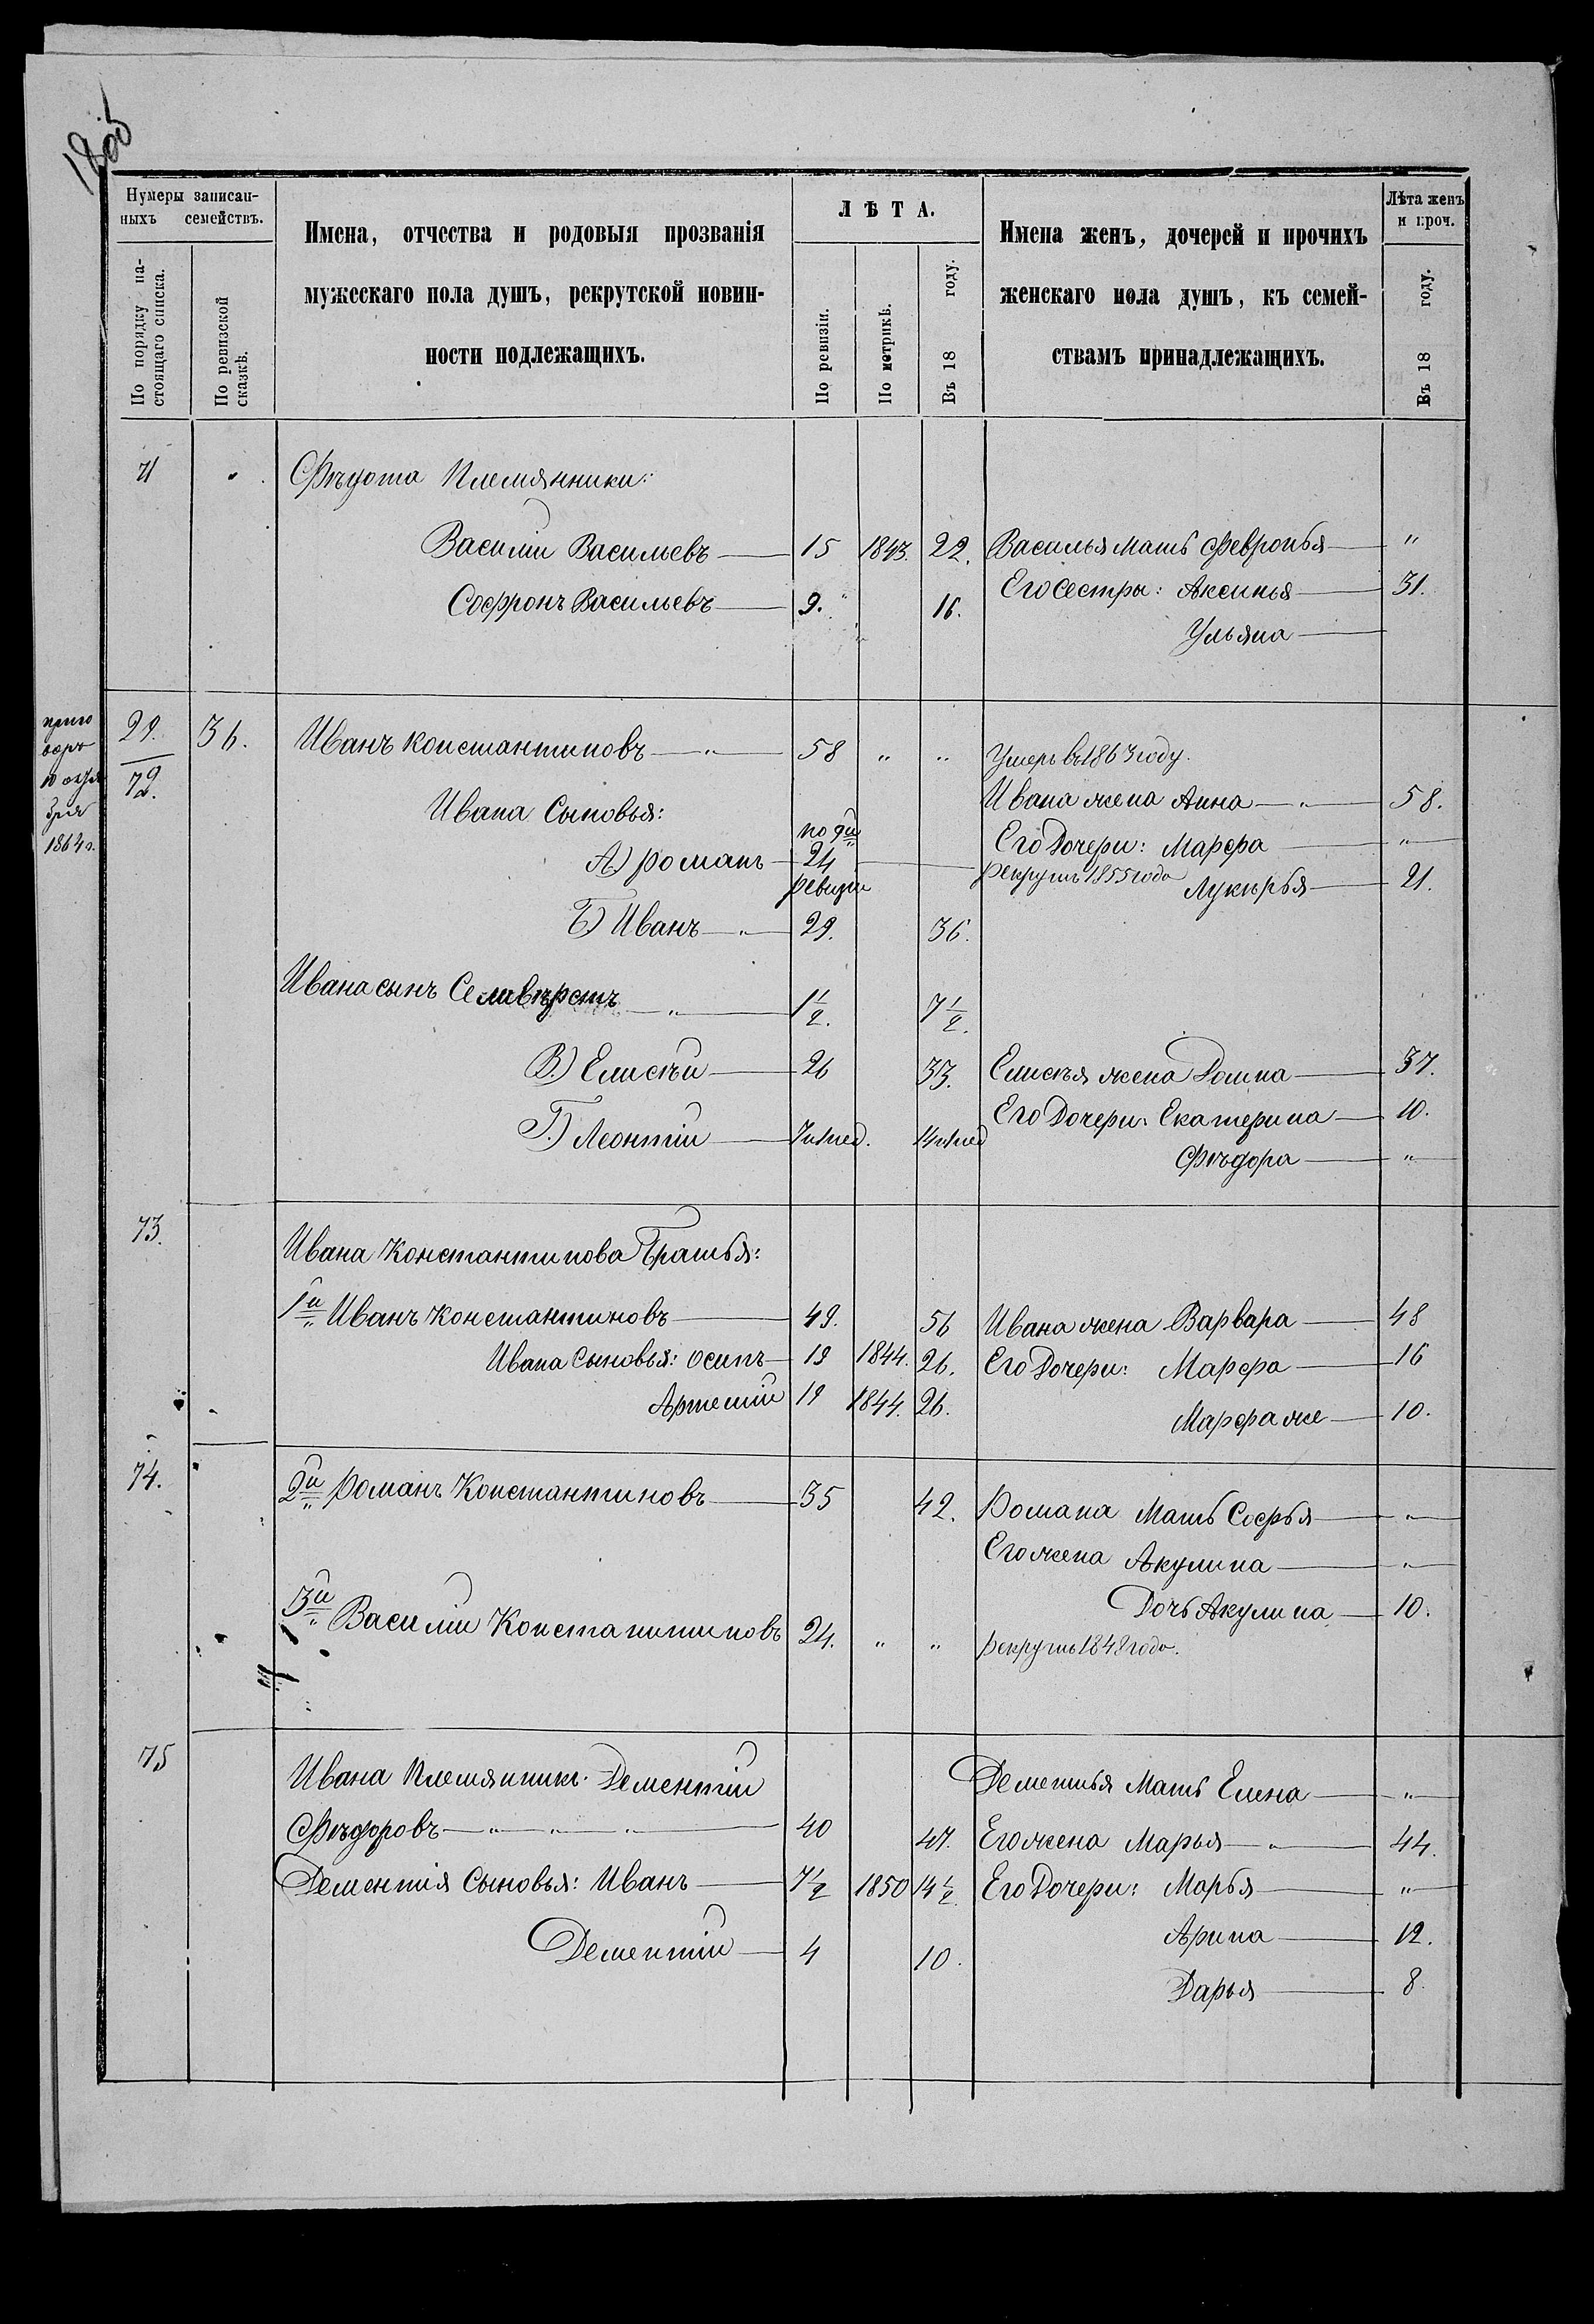 Нумеры записан-
ныхъ семействъ.
По порядку на-
стоящаго списка.
По ревизской
сказкѣ.
Имена, отчества и родовыя прозванія
мужескаго пола душъ, рекрутской повин-
ности подлежащихъ.
ЛѢТА.
По ревизіи.
По метрикѣ.
Въ 18 году.
Имена женъ, дочерей и прочихъ
женскаго пола душъ, къ семей-
ствамъ принадлежащихъ.
Лѣта женъ
и проч.
Въ 18 году.
71 " Ѳѣдота Племянники:
Василій Васильевъ — 15 1843. 22. Василья мать Февронья — "
Софронъ Васильевъ — 9. " 16. Его сестры: Аксинья — 31.
Ульяна —
приго
воръ
10 октя
бря
1864 г.
29. 36. Иванъ Константиновъ — " — 58 " " Умеръ въ 1863 году.
72. Ивана Сыновья: Ивана жена Анна — " — 58.
по 9й
А.) Романъ — 24 — Его Дочери: Марфа — "
ревизіи рекрутъ 1855 года Лукѣрья — 21.
Б.) Иванъ — " — 29. 36.
Ивана сынъ Селивѣрстъ — " — 1½. 7½.
В.) Елисѣй — 26 33. Елисѣя жена Домна — 37.
Его Дочери: Екатерина — 10.
Г.) Леонтій — 7 нед. 14 нед
Ѳѣдора — "
73. Ивана Константинова Братья:
1й Иванъ Константиновъ — 49. 56 Ивана жена Варвара — 48
Ивана Сыновья: Осипъ — 19 1844. 26. Его Дочери: Марфа — 16
Артемій 19 1844. 26. Марфа же — 10.
74. 2й Романъ Константиновъ — 35 42. Романа Мать Софья — "
Его жена Акулина — "
Дочь Акулина — 10.
3й Василій Константиновъ 24. " " рекрутъ 1848 года.
75 Ивана Племянникъ Дементій Дементья Мать Елена — "
Ѳѣдоровъ — " — " — " — 40 47. Его жена Марья — " — 44.
Дементія Сыновья: Иванъ — 7½ 1850 14½. Его Дочери: Марья — "
Арина — 12.
Дементій — 4 10.
Дарья — 8.